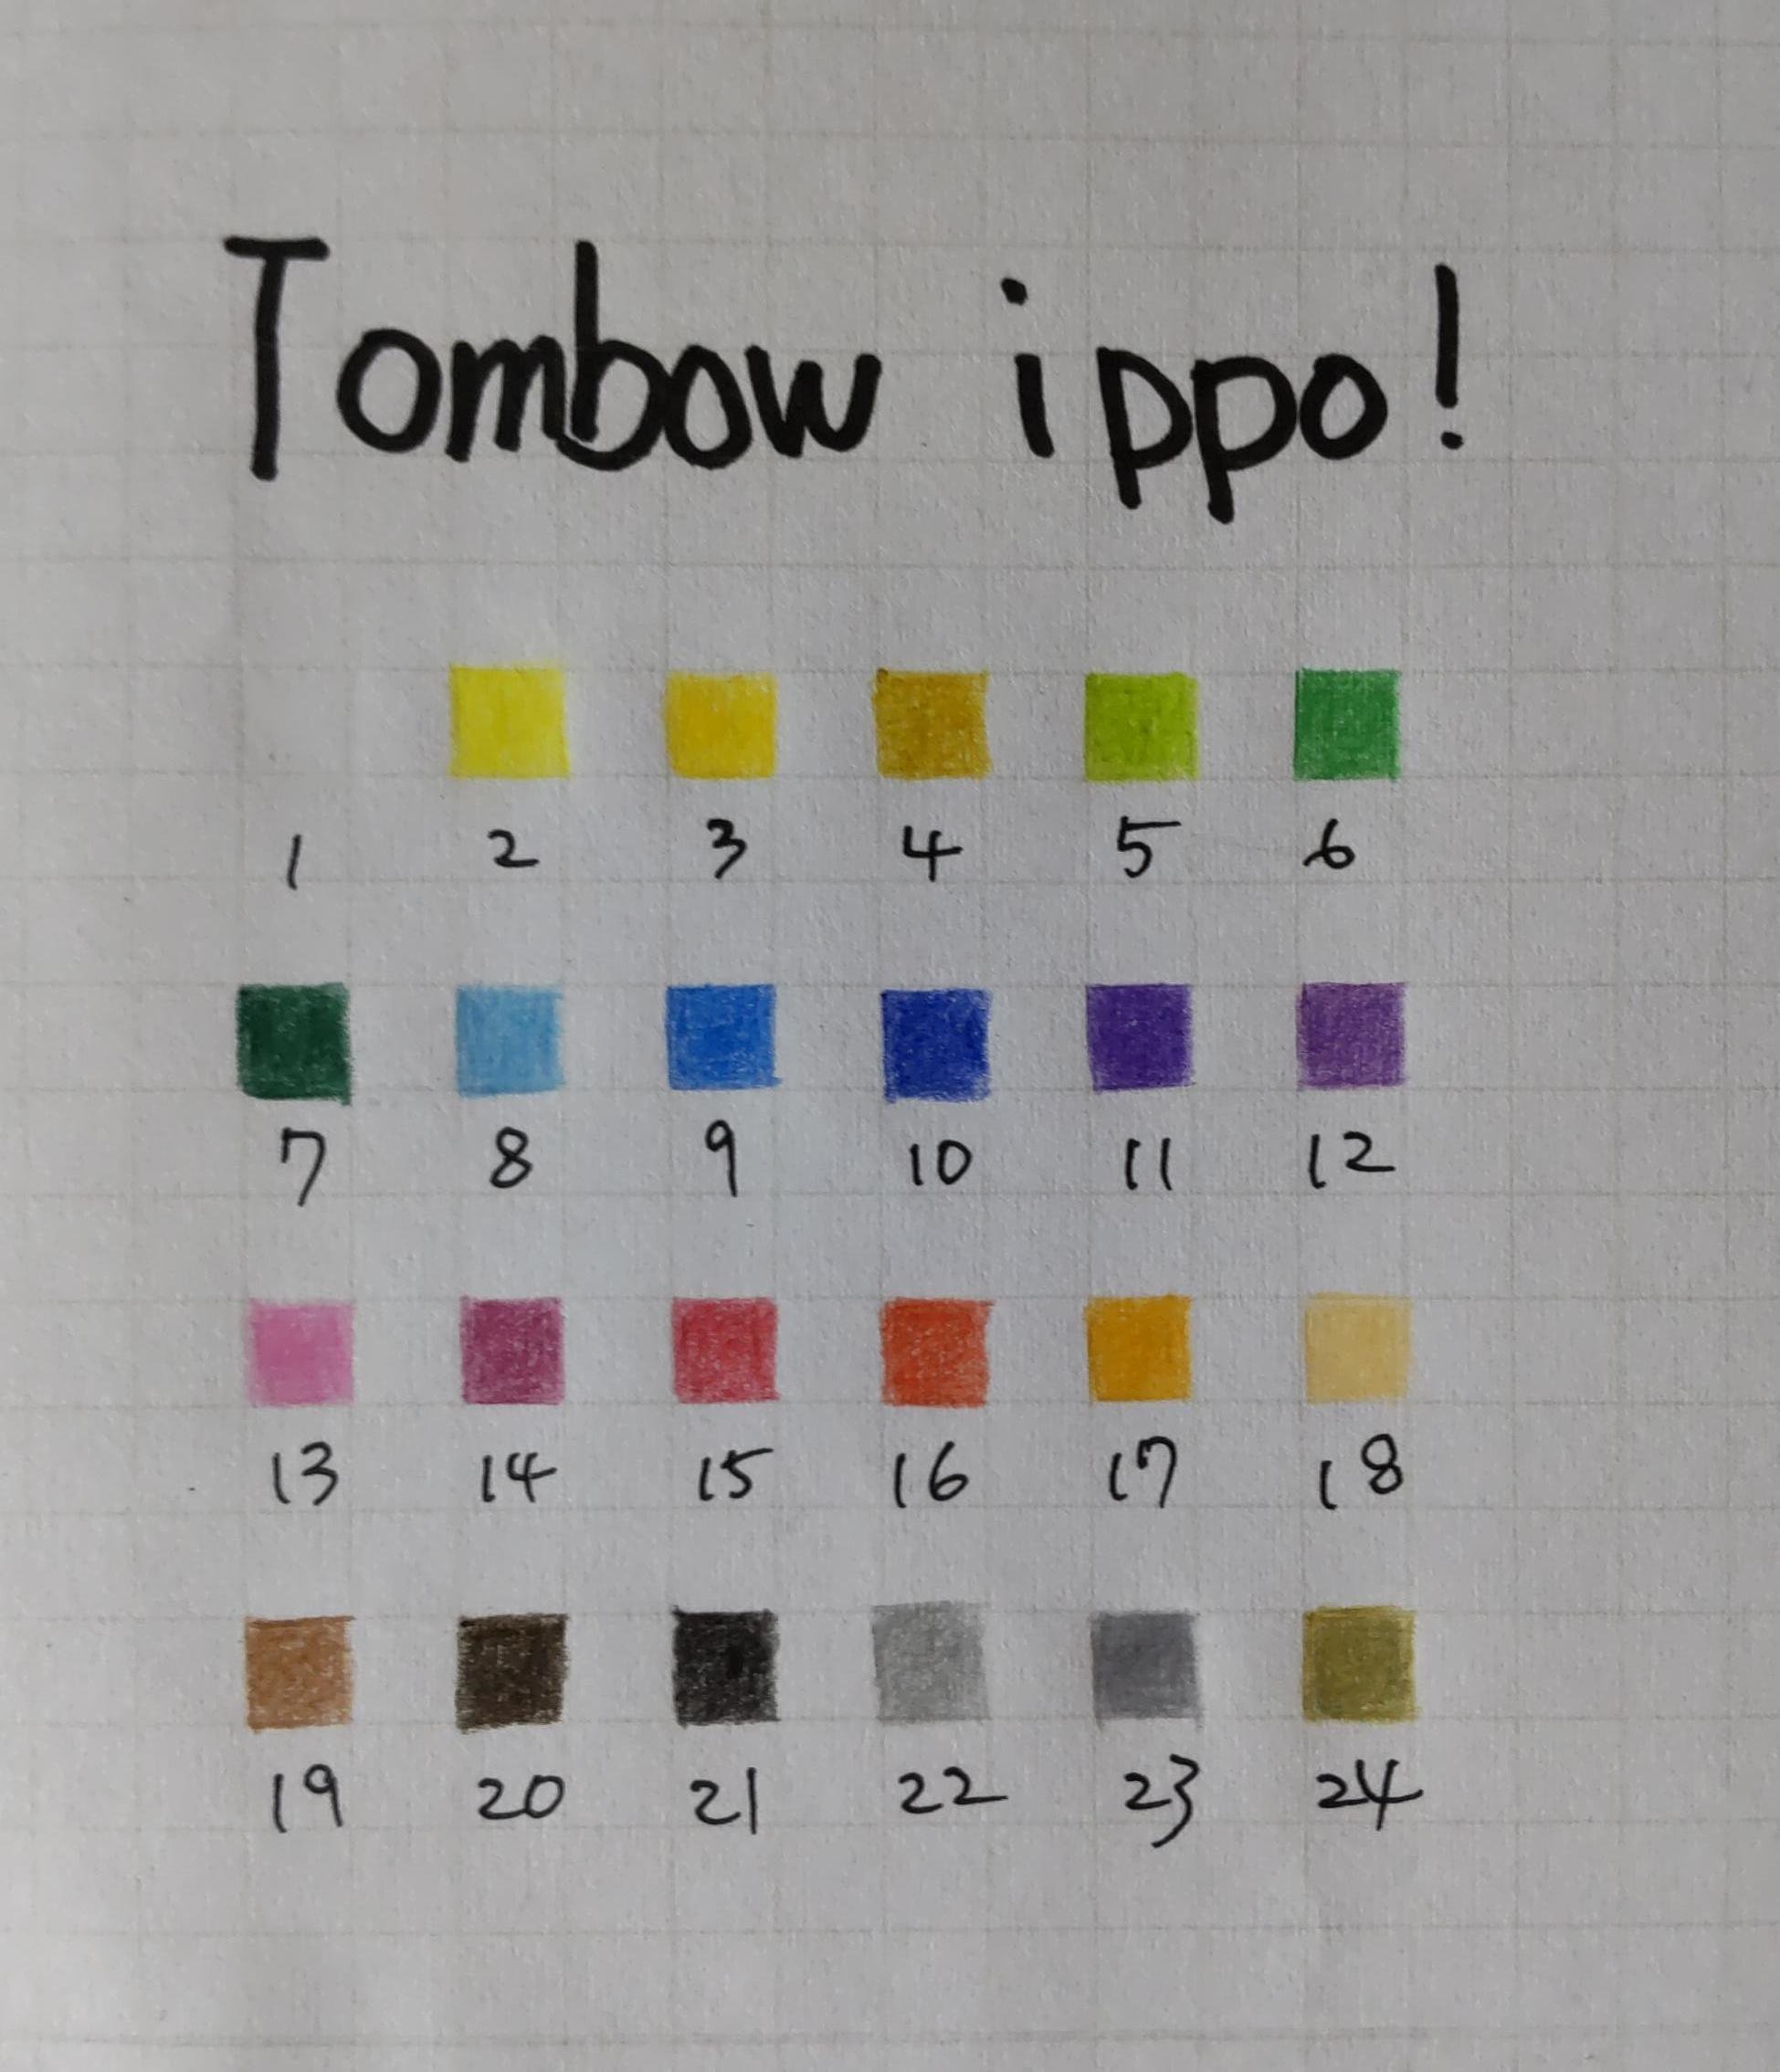 Tombow ippo!
1 2 3 4 5 6
7 8 9 10 11 12
13 14 15 16 17 18
19 20 21 22 23 24